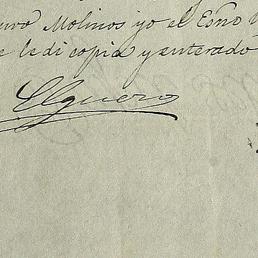 Molinos yo el Esno
le di copia y enterado
Elguero